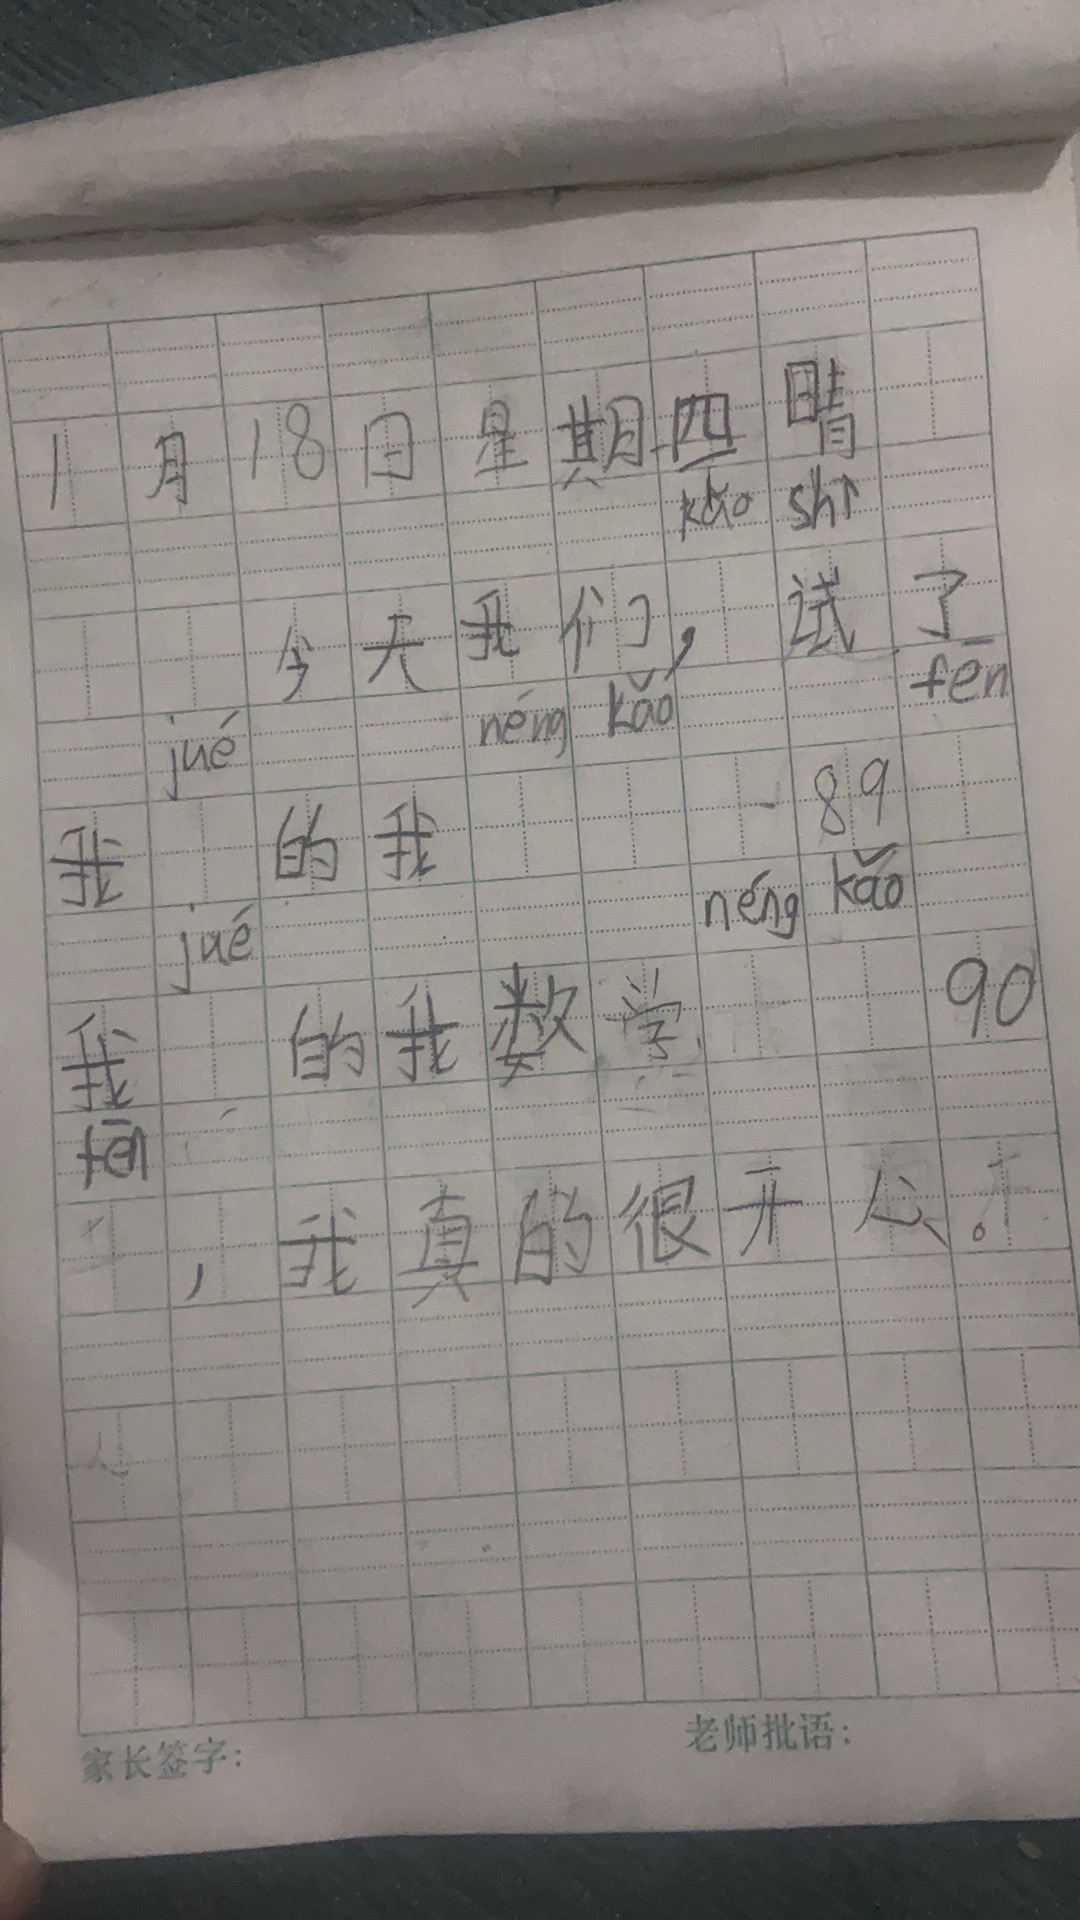 1月18日星期四晴
kǎo shì
今天我们，试了
jué néng kǎo fēn
我 的我 89
jué néng kǎo
我 的我数学 90
fēn
，我真的很开心。
家长签字： 老师批语：